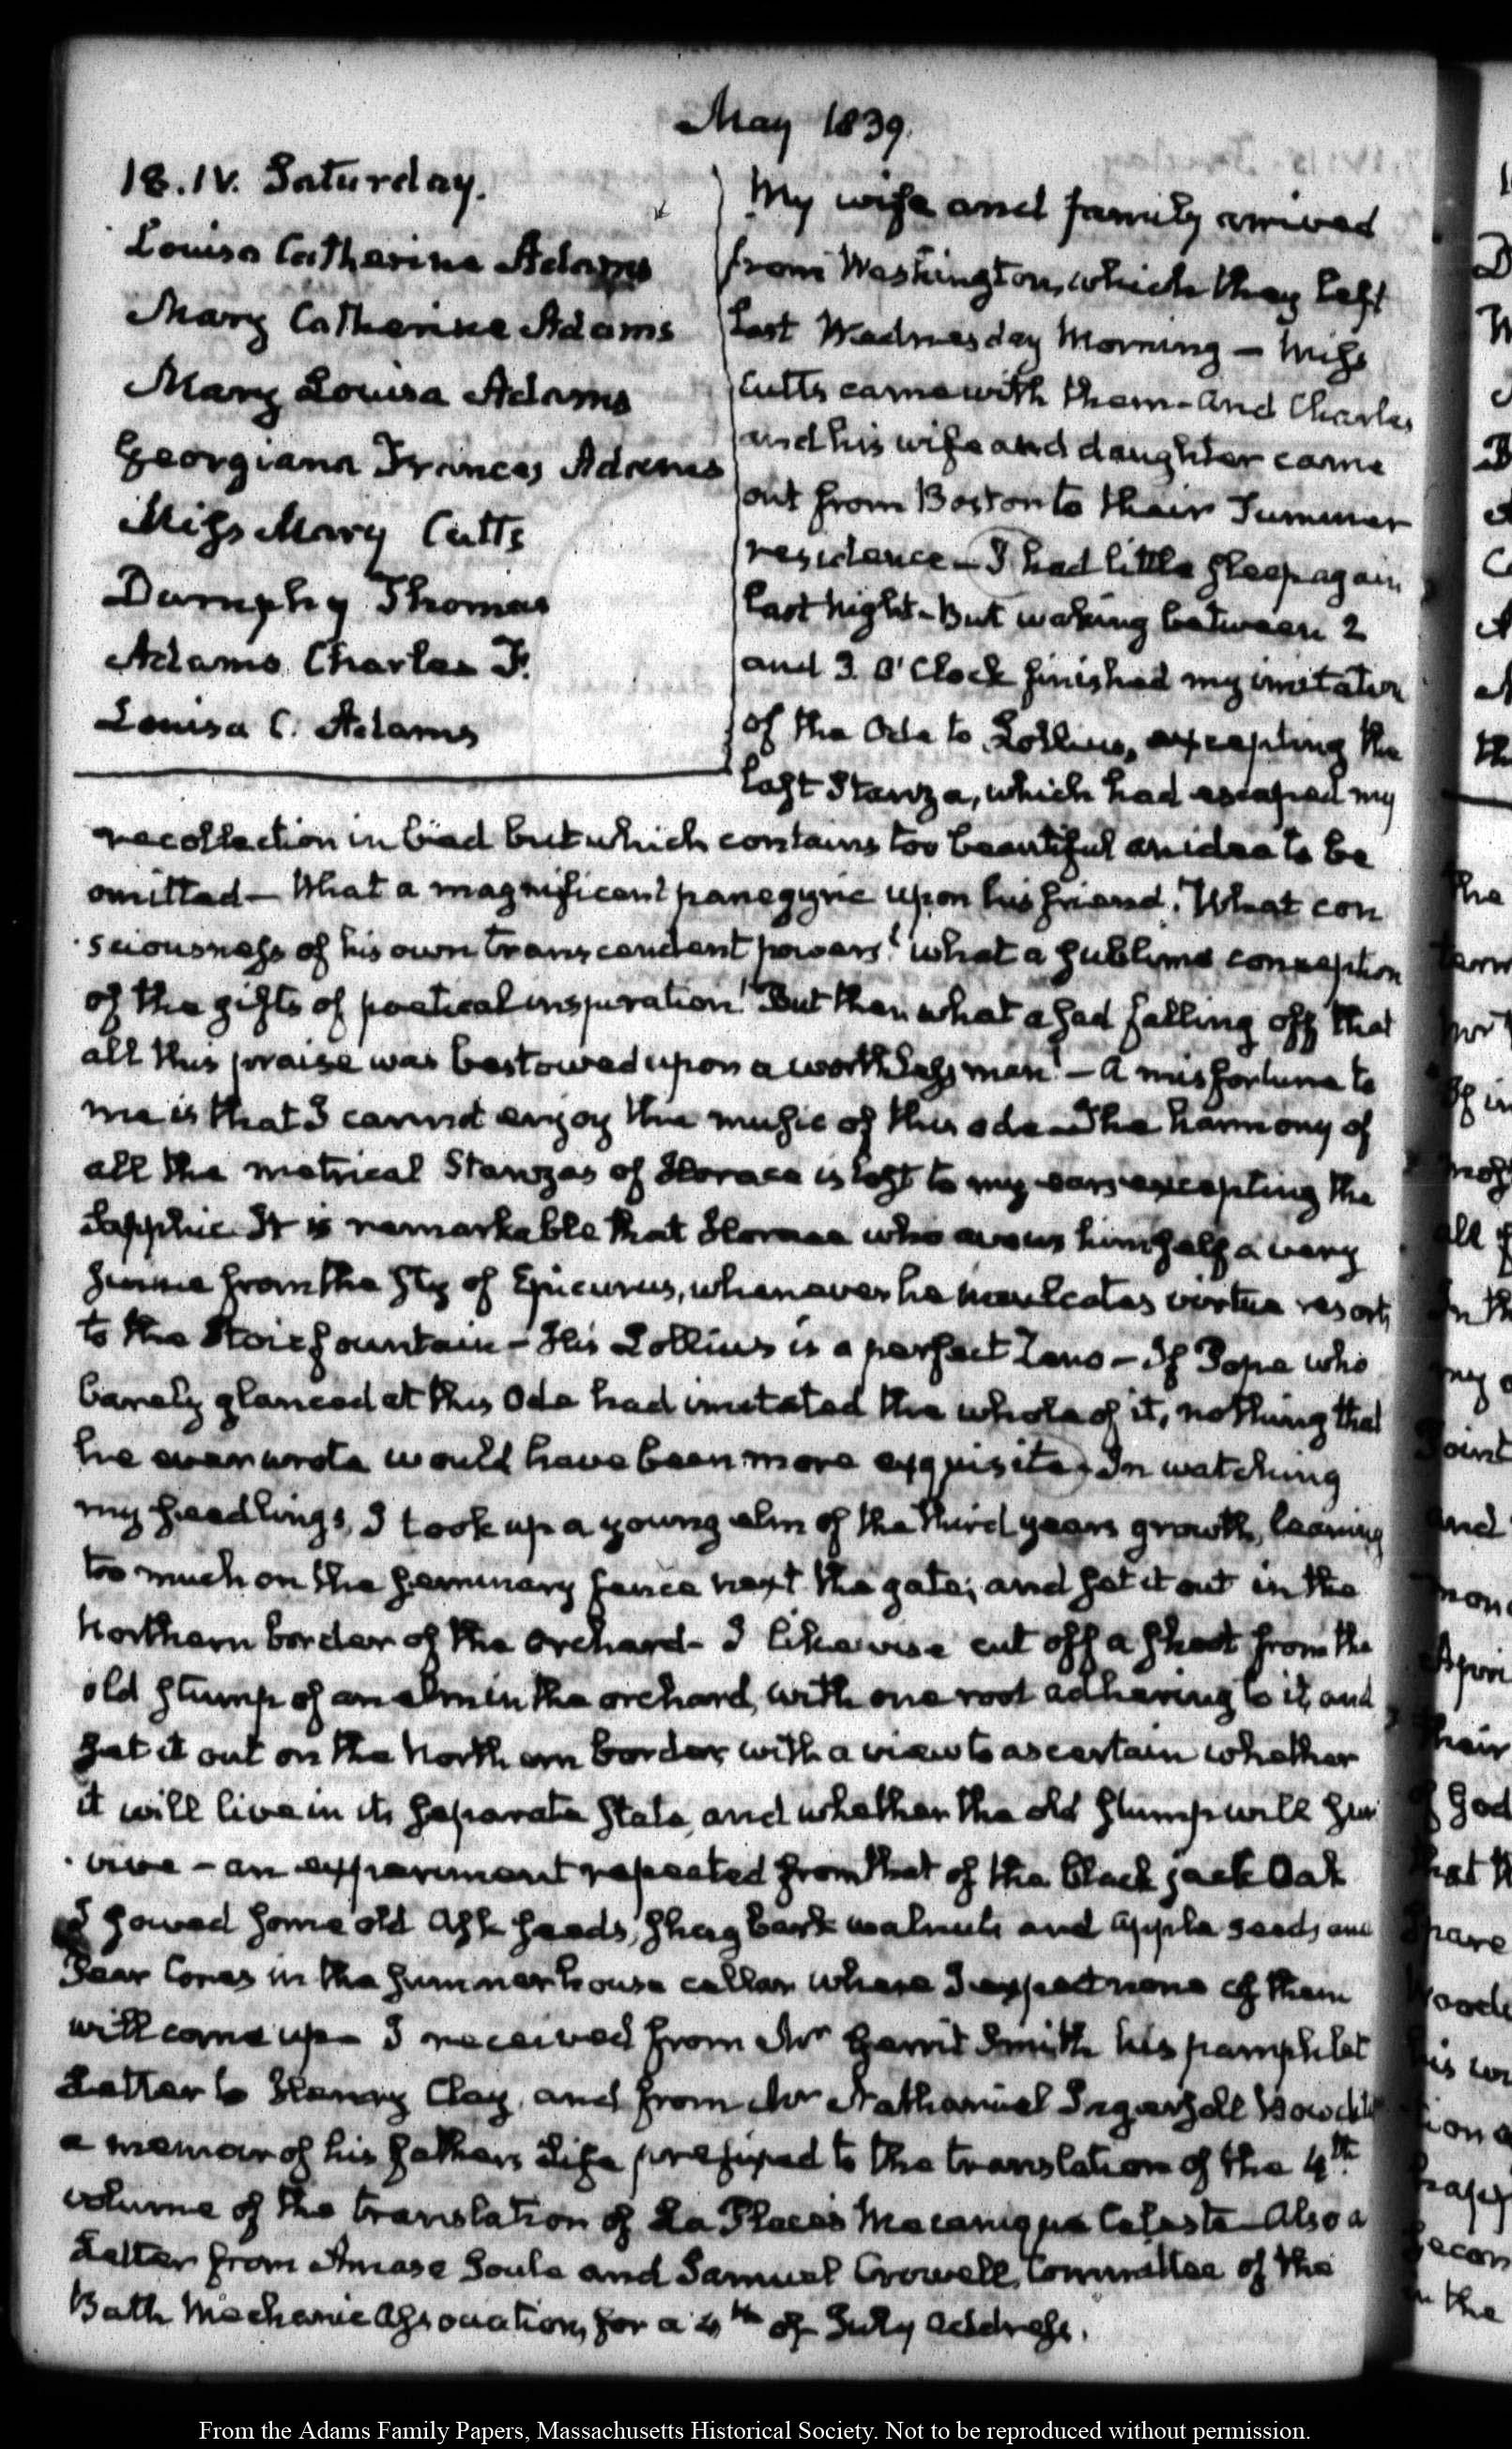 May 1839.
18. IV. Saturday.
Louisa Catherine Adams
Mary Catherine Adams
Mary Louisa Adams
Georgiana Frances Adams
Miss Mary Cutts
Dumphy Thomas
Adams Charles F.
Louisa C. Adams
My wife and family arrived
from Washington, which they left
last Wednesday Morning — Miss
Cutts came with them - and Charles
and his wife and daughter came
out from Boston to their Summer
residence — I had little sleep again
last night - But waking between 2
and 3 O'Clock finished my imitation
of the Ode to Lollius, excepting the
last Stanza, which had escaped my
recollection in bed but which contains too beautiful an idea to be
omitted — What a magnificent panegyric upon his friend! What con
sciousness of his own transcendent powers! what a sublime conception
of the gifts of poetical inspiration! But then what a sad falling off that
all this praise was bestowed upon a worthless man! — A misfortune to
me is that I cannot enjoy the music of this ode — The harmony of
all the metrical Stanzas of Horace is lost to my ears excepting the
Sapphic. It is remarkable that Horace who avows himself a very
swine from the sty of Epicurus, whenever he inculcates virtue resorts
to the Stoic fountain - His Lollius is a perfect Zeno - If Pope who
barely glanced at this Ode had imitated the whole of it, nothing that
he ever wrote would have been more exquisite. In watching
my seedlings, I took up a young elm of the third years growth, leaning
too much on the seminary fence next the gate; and set it out in the
Northern border of the orchard - I likewise cut off a shoot from the
old stump of an elm in the orchard, with one root adhering to it, and
set it out on the Northern border, with a view to ascertain whether
it will live in its separate state, and whether the old stump will sur
vive - an experiment repeated from that of the black jack Oak
I sowed some old Ash seeds, shagbark walnuts and apple seeds and
Pear Cores in the summer house cellar where I expect none of them
will come up - I received from Mr Gerrit Smith his pamphlet
Letter to Henry Clay, and from Mr Nathaniel Ingersoll Bowditch
a memoir of his father's Life prefixed to the translation of the 4th
volume of the translation of La Place's Mecanique Celeste — Also a
Letter from Amase Soule and Samuel Crowell, Committee of the
Bath Mechanic Association, for a 4th of July address.
From the Adams Family Papers, Massachusetts Historical Society. Not to be reproduced without permission.